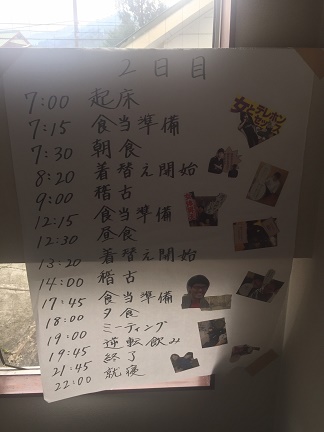 2日目
7:00 起床
7:15 食当準備
7:30 朝食
8:20 着替え開始
9:00 稽古
12:15 食当準備
12:30 昼食
13:20 着替え開始
14:00 稽古
17:45 食当準備
18:00 夕食
19:00 ミーティング
19:45 逆転飲み
21:45 終了
22:00 就寝